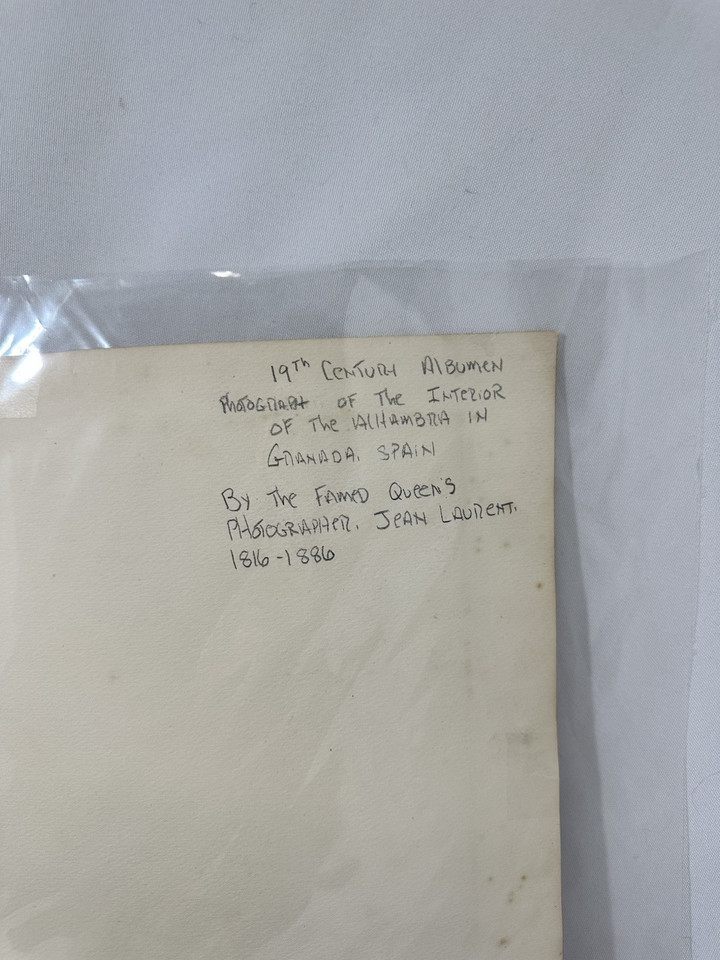 19Th CENTURY AlBUMEN
PHOTOGRAPH OF The INTERIOR
OF The AlHAMBRA IN
GRANADA, SPAiN
By The FAMED QUeeN'S
PHOTOGRAPHeR, JeAN LAUReNT.
1816-1886